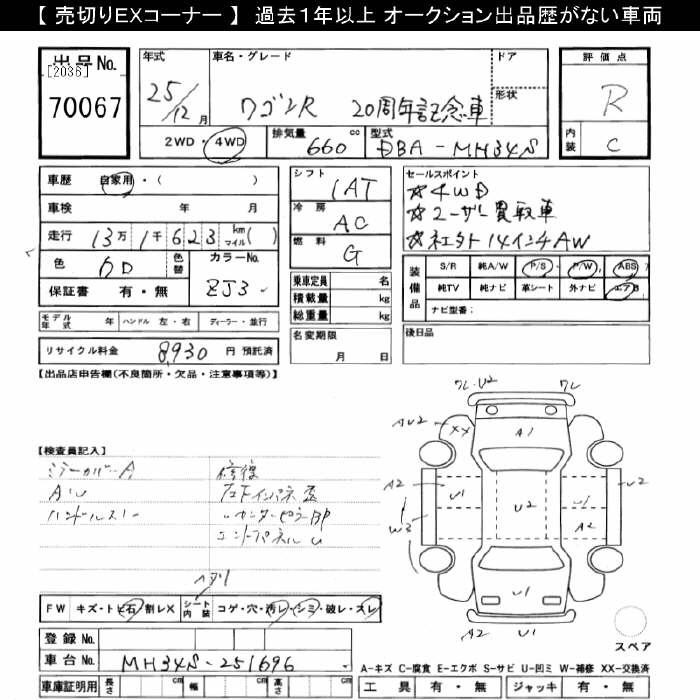 【 売切りEXコーナー 】 過去1年以上 オークション出品歴がない車両
出品No.
[2036]
70067
年式
25/12月
車名・グレード
ワゴンR 20周年記念車
ドア
形状
2WD・4WD
排気量
660 cc
型式
DBA-MH34S
評価点
R
内装
C
車歴 自家用・( )
車検 年 月
走行 13万1千623 km マイル( )
色 色替 カラーNo.
ZJ3
保証書 有・無
モデル年式 年 ハンドル 左・右 ディーラー・並行
リサイクル料金 8,930 円 預託済
シフト
1AT
冷房
AC
燃料
G
乗車定員 名
積載量 kg
総重量 kg
名変期限
月 日
セールスポイント
☆4WD
☆ユーザー買取車
☆社外14インチAW
装備品
S/R 純A/W P/S P/W ABS
純TV 純ナビ 革シート 外ナビ エアB
ナビ型番:
後日品
【出品店申告欄(不良箇所・欠品・注意事項等)】
【検査員記入】
ミラーカバーA
AU
ハンドルスレ
修復
センターピラーBP
エンドパネルU
ヘタリ
FW キズ・トビ石・割レX シート内装 コゲ・穴・汚レ・シミ・破レ・スレ
登録No.
車台No. MH34S-251696
車庫証明用 長さ cm 幅 cm 高さ cm
ワレ・U2 ワレ
AU2 XX A1
A2 U1 U2 U1 U2
W3 A2
U1
A2 U1
スペア
A-キズ C-腐食 E-エクボ S-サビ U-凹ミ W-補修 XX-交換済
工具 有・無 ジャッキ 有・無